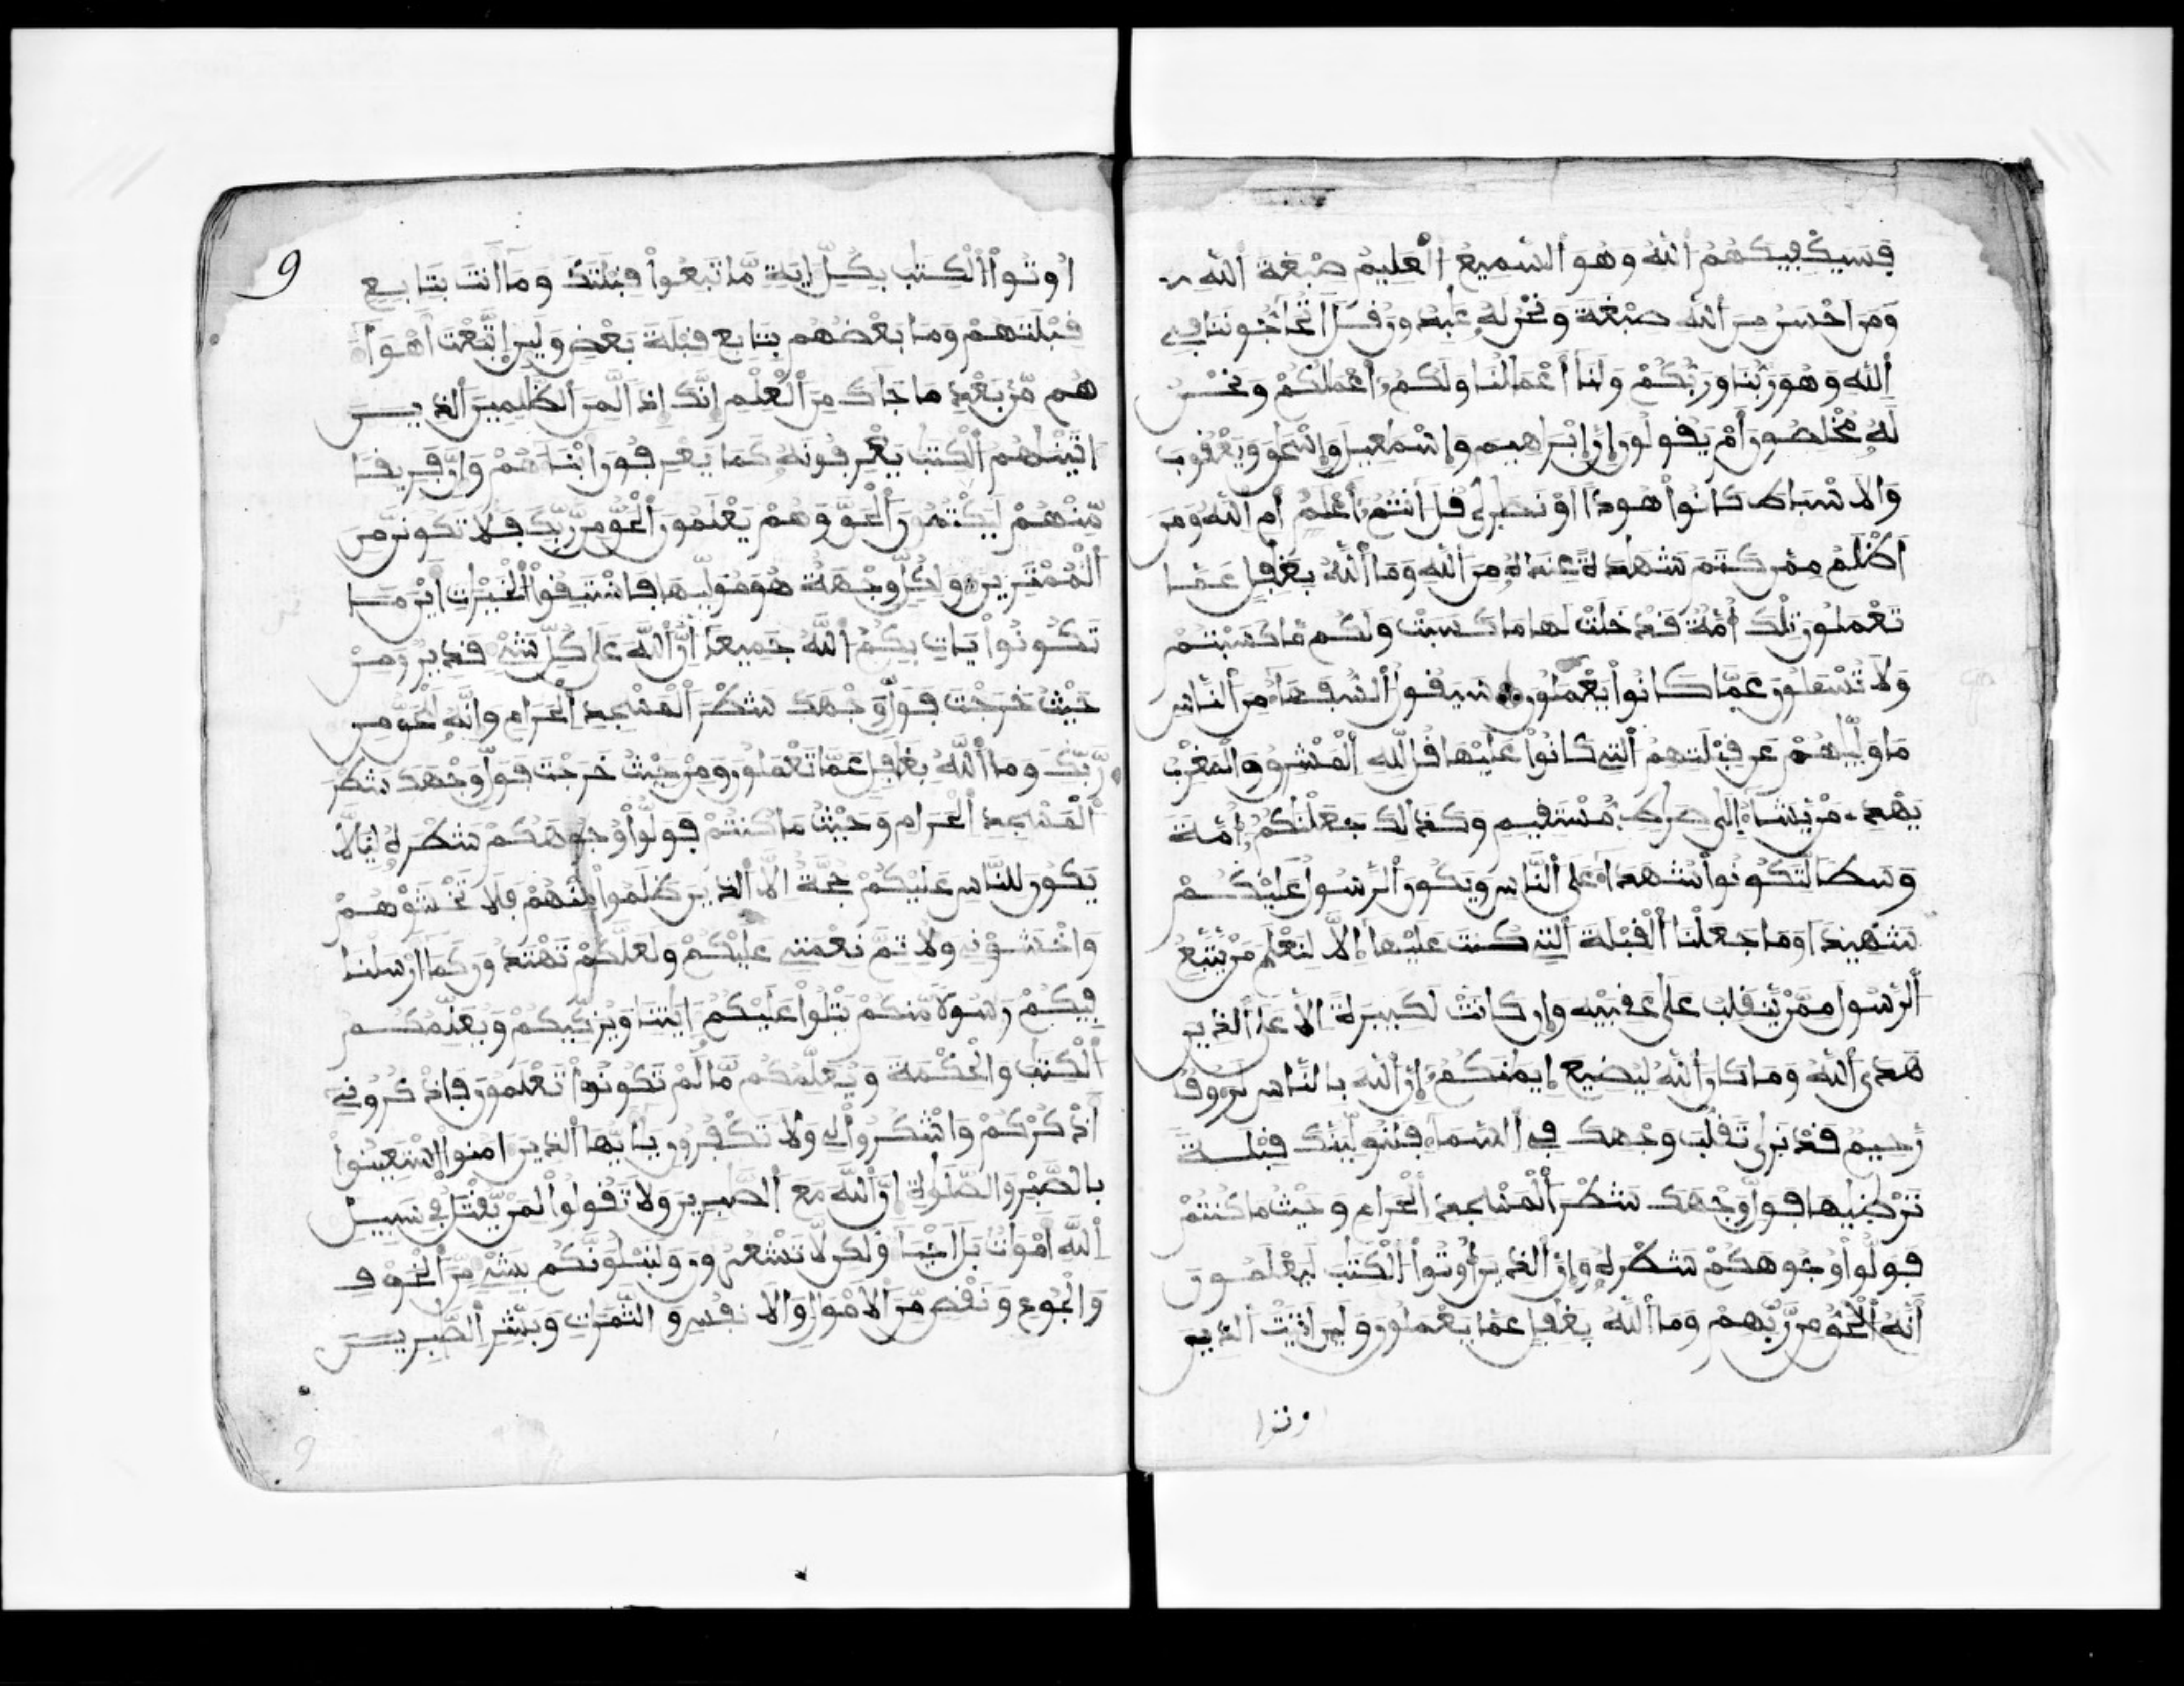 فسيكفيكهم الله وهو السميع العليم صبغة الله
ومن احسن من الله صبغة ونحن له عبدون قل اتحاجوننا في
الله وهو ربنا وربكم ولنا أعملنا ولكم أعملكم ونحن
له مخلصون أم يقولون إن إبراهيم وإسمعيل وإسحق ويعقوب
والاسباط كانوا هودا او نصرى قل أانتم أعلم أم الله ومن
اظلم ممن كتم شهدة عنده من الله وما الله بغفل عما
تعملون تلك أمة قد خلت لها ما كسبت ولكم ما كسبتم
ولا تسئلون عما كانوا يعملون سيقول السفهاء من الناس
ما وليهم عن قبلتهم التي كانوا عليها قل لله المشرق والمغرب
يهدي من يشاء الى صرط مستقيم وكذلك جعلنكم أمة
وسطا لتكونوا شهداء على الناس ويكون الرسول عليكم
شهيدا وما جعلنا القبلة التي كنت عليها إلا لنعلم من يتبع
الرسول ممن ينقلب على عقبيه وإن كانت لكبيرة الا على الذين
هدى الله وما كان الله ليضيع إيمنكم إن الله بالناس لرءوف
رحيم قد نرى تقلب وجهك في السماء فلنولينك قبلة
ترضيها فول وجهك شطر المسجد الحرام وحيث ما كنتم
فولوا وجوهكم شطره وإن الذين أوتوا الكتب ليعلمون
أنه الحق من ربهم وما الله بغفل عما يعملون ولين اتيت الذين
اوتوا
9
اوتوا الكتب بكل اية ما تبعوا قبلتك وما انت بتابع
قبلتهم وما بعضهم بتابع قبلة بعض ولين اتبعت اهواء
هم من بعد ما جاك من العلم إنك اذا لمن الظلمين الذين
اتينهم الكتب يعرفونه كما يعرفون ابناهم وإن فريقا
منهم ليكتمون الحق وهم يعلمون الحق من ربك فلا تكونن من
الممترين ولكل وجهة هو موليها فاستبقوا الخيرت اين ما
تكونوا يات بكم الله جميعا إن الله على كل شيء قدير ومن
حيث خرجت فول وجهك شطر المسجد الحرام وإنه للحق من
ربك وما الله بغفل عما تعملون ومن حيث خرجت فول وجهك شطر
المسجد الحرام وحيث ما كنتم فولوا وجوهكم شطره ليلا
يكون للناس عليكم حجة الا الذين ظلموا منهم فلا تخشوهم
واخشوني ولا تم نعمتي عليكم ولعلكم تهتدون كما ارسلنا
فيكم رسولا منكم يتلوا عليكم ايتنا ويزكيكم ويعلمكم
الكتب والحكمة ويعلمكم ما لم تكونوا تعلمون فاذكروني
اذكركم واشكروا لي ولا تكفرون يايها الذين امنوا استعينوا
بالصبر والصلوة إن الله مع الصبرين ولا تقولوا لمن يقتل في سبيل
الله اموات بل احيا ولكن لا تشعرون ولنبلونكم بشيء من الخوف
والجوع ونقص من الاموال والانفس والثمرت وبشر الصبرين